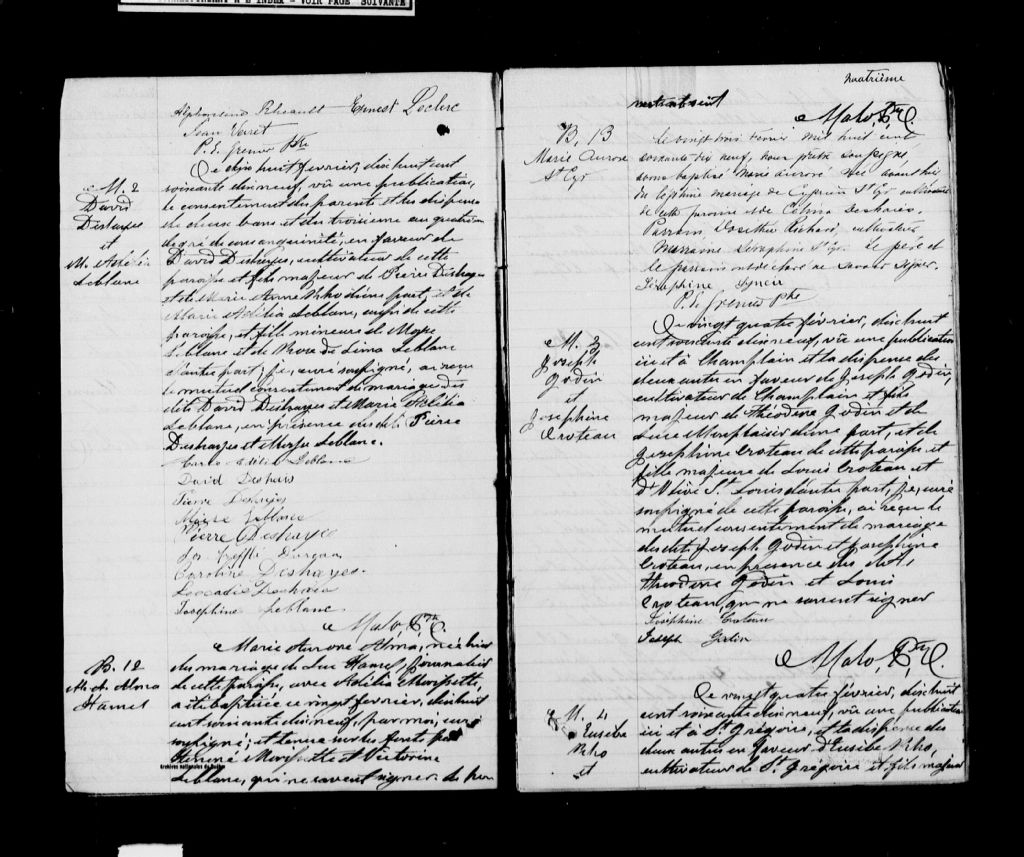 A L'INDEX - VOIR PAGE SUIVANTE
Alphonsine Rheault Ernest Leclerc
Jean Veret
P. E. Ptre
M. 2
David
Deshayes
et
M. Adélia
Leblanc
Ce dix huit février, dix huit cent
soixante dix neuf, vu une publication,
le consentement des parents et les dispenses
de deux bans et du troisième au quatrième
degré de consanguinité, en faveur de
David Deshayes, cultivateur de cette
paroisse et fils majeur de Pierre Deshayes
et de Marie Anne Rho d'une part, et de
Marie Adélia Leblanc, aussi de cette
paroisse, et fille mineure de Moyse
Leblanc et de Rose de Lima Leblanc
d'autre part; je, curé soussigné, ai reçu
le mutuel consentement de mariage des
dits David Deshayes et Marie Adélia
Leblanc, en présence des dits Pierre
Deshayes et Moyse Leblanc.
Marie Adélia Leblanc
David Deshaies
Pierre Deshayes
Moïse Leblanc
Pierre Deshayes
Caroline Deshayes.
Leocadie Deshaies
Josephine Leblanc
Malo, Ptre C.
B. 12
M. A. Alma
Hamel
Marie Aurore Alma, née hier
du mariage de Luc Hamel, journalier
de cette paroisse, avec Adélia Morissette,
a été baptisée ce vingt février, dix huit
cent soixante dix neuf, par moi, curé
soussigné; et tenue sur les fonts par
Morissette et Victorine
Leblanc, qui ne savent signer. Le père
Archives nationales du Québec
Quatrième
Malo, Ptre C.
B. 13
Marie Aurore
St Cyr
Le vingt trois février mil huit cent
soixante dix neuf, nous prêtre soussigné
avons baptisé Marie Aurore née avant hier
du légitime mariage de Cyprien St Cyr cultivateur
de cette paroisse et de Celina Deshaies.
Parrain Dosithée Richard, cultivateur
Marraine Séraphine St Cyr. Le père et
le parrain ont déclaré ne savoir signer.
P. E. Ptre
M. 3
Joseph
Godin
et
Josephine
Croteau
Ce vingt quatre février, dix huit
cent soixante dix neuf, vu une publication
ici et à Champlain et la dispense des
deux autres en faveur de Joseph Godin,
cultivateur de Champlain et fils
majeur de Théodore Godin et de
Luce Montplaisir d'une part, et de
Josephine Croteau de cette paroisse et
fille majeure de Louis Croteau et
d'Olive St Louis d'autre part, je, curé
soussigné de cette paroisse, ai reçu le
mutuel consentement de mariage
des dits Joseph Godin et Josephine
Croteau, en présence des dits
Théodore Godin et Louis
Croteau, qui ne savent signer
Joséphine Croteau
Joseph Godin
Malo, Ptre C.
M. 4
Eusèbe
Rho
et
Ce vingt quatre février, dix huit
cent soixante dix neuf, vu une publication
ici et à St. Grégoire, et la dispense des
deux autres en faveur d'Eusèbe Rho,
cultivateur de St. Grégoire et fils majeur